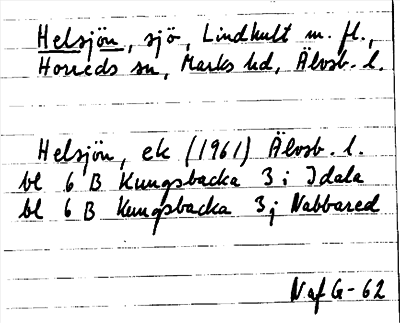 Helsjön, sjö, Lindhult m. fl.,
Horreds sn, Marks hd, Älvsb. l.
Helsjön, ek (1961) Älvsb. l.
bl 6 B Kungsbacka 3 i Idala
bl 6 B Kungsbacka 3 j Nabbared
NafG-62